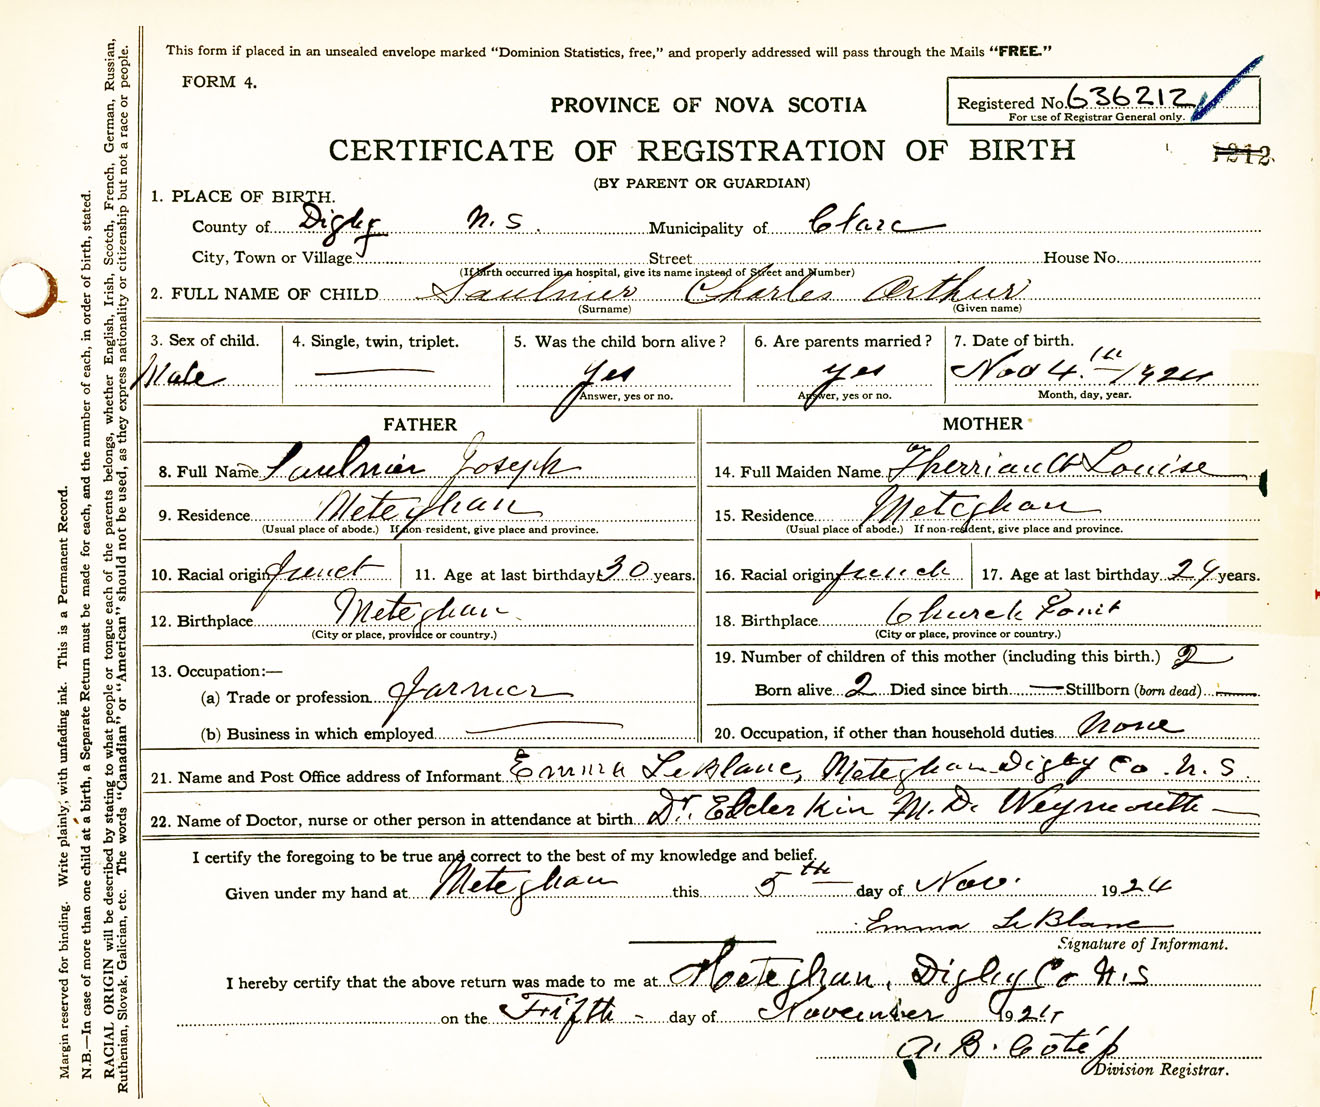 This form if placed in an unsealed envelope marked "Dominion Statistics, free," and properly addressed will pass through the Mails "FREE."
FORM 4.
PROVINCE OF NOVA SCOTIA
Registered No. 636212
For use of Registrar General only.
CERTIFICATE OF REGISTRATION OF BIRTH
(BY PARENT OR GUARDIAN)
1. PLACE OF BIRTH.
County of Digby N.S. Municipality of Clare
City, Town or Village Street House No.
(If birth occurred in a hospital, give its name instead of Street and Number)
2. FULL NAME OF CHILD Saulnier Charles Arthur
(Surname) (Given name)
3. Sex of child. 4. Single, twin, triplet. 5. Was the child born alive? 6. Are parents married? 7. Date of birth.
Male — yes yes Nov 4.th 1924
Answer, yes or no. Answer, yes or no. Month, day, year.
FATHER MOTHER
8. Full Name Saulnier Joseph 14. Full Maiden Name Therriault Louise
9. Residence Meteghan 15. Residence Meteghan
(Usual place of abode.) If non-resident, give place and province. (Usual place of abode.) If non-resident, give place and province.
10. Racial origin french 11. Age at last birthday 30 years. 16. Racial origin french 17. Age at last birthday 24 years.
12. Birthplace Meteghan 18. Birthplace Church Point
(City or place, province or country.) (City or place, province or country.)
13. Occupation:— 19. Number of children of this mother (including this birth.) 2
(a) Trade or profession farmer Born alive 2 Died since birth — Stillborn (born dead) —
(b) Business in which employed — 20. Occupation, if other than household duties none
21. Name and Post Office address of Informant Emma LeBlanc, Meteghan Digby Co. N.S.
22. Name of Doctor, nurse or other person in attendance at birth Dr. Elderkin M.D. Weymouth —
I certify the foregoing to be true and correct to the best of my knowledge and belief.
Given under my hand at Meteghan this 5th day of Nov. 1924
Emma LeBlanc
Signature of Informant.
I hereby certify that the above return was made to me at Meteghan, Digby Co N.S
on the Fifth - day of November 1924
A. B. Coté
Division Registrar.
Margin reserved for binding. Write plainly, with unfading ink. This is a Permanent Record.
N.B.—In case of more than one child at a birth, a Separate Return must be made for each, and the number of each, in order of birth, stated.
RACIAL ORIGIN will be described by stating to what people or tongue each of the parents belongs, whether English, Irish, Scotch, French, German, Russian,
Ruthenian, Slovak, Galician, etc. The words "Canadian" or "American" should not be used, as they express nationality or citizenship but not a race or people.